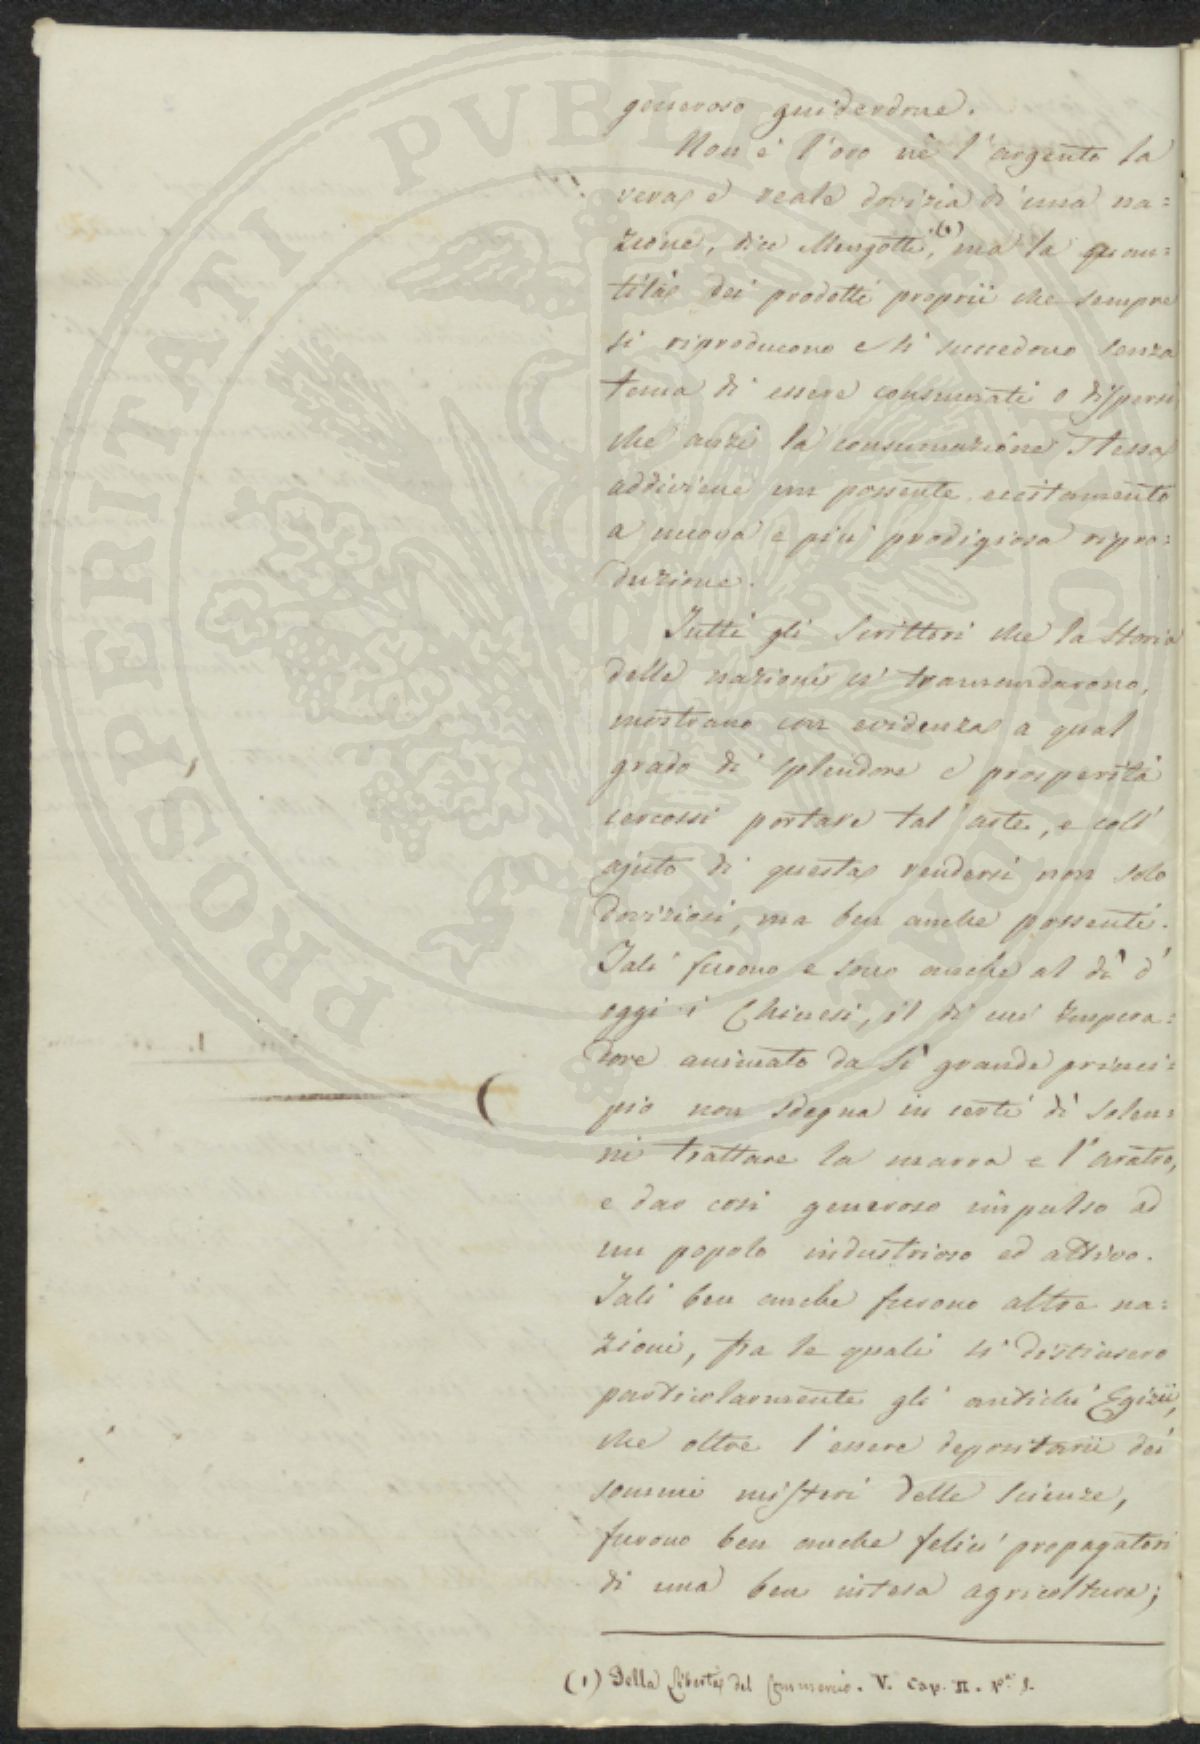 generoso guiderdone.
Non è l'oro nè l'argento la
vera e reale dovizia di una na=
zione, dice Mengotti,(1) ma la quan=
tità dei prodotti proprii che sempre
si riproducono e si succedono senza
tema di essere consumati o dispersi
che anzi la consumazione stessa
addiviene un possente eccitamento
a nuova e più prodigiosa ripro=
duzione.
Tutti gli Scrittori che la storia
delle nazioni ci tramandarono,
mostrano con evidenza a qual
grado di splendore e prosperità
cercossi portare tal'arte, e coll'
ajuto di questa rendersi non solo
doviziosi, ma ben anche possenti.
Tali furono e sono anche al dì d'
oggi i Chinesi, il di cui Impera=
dore animato da sì grande princi=
pio non sdegna in certi dì solen=
ni trattare la marra e l'aratro,
e dar così generoso impulso ad
un popolo industrioso ed attivo.
Tali ben anche furono altre na=
zioni, fra le quali si distinsero
particolarmente gli antichi Egizii,
che oltre l'essere depositarii dei
sommi misteri delle scienze,
furono ben anche felici propagatori
di una ben intesa agricoltura;
(1) Della Libertà del Commercio. V. Cap. II.
PROSPERITATI PUBLICAE AUGENDAE